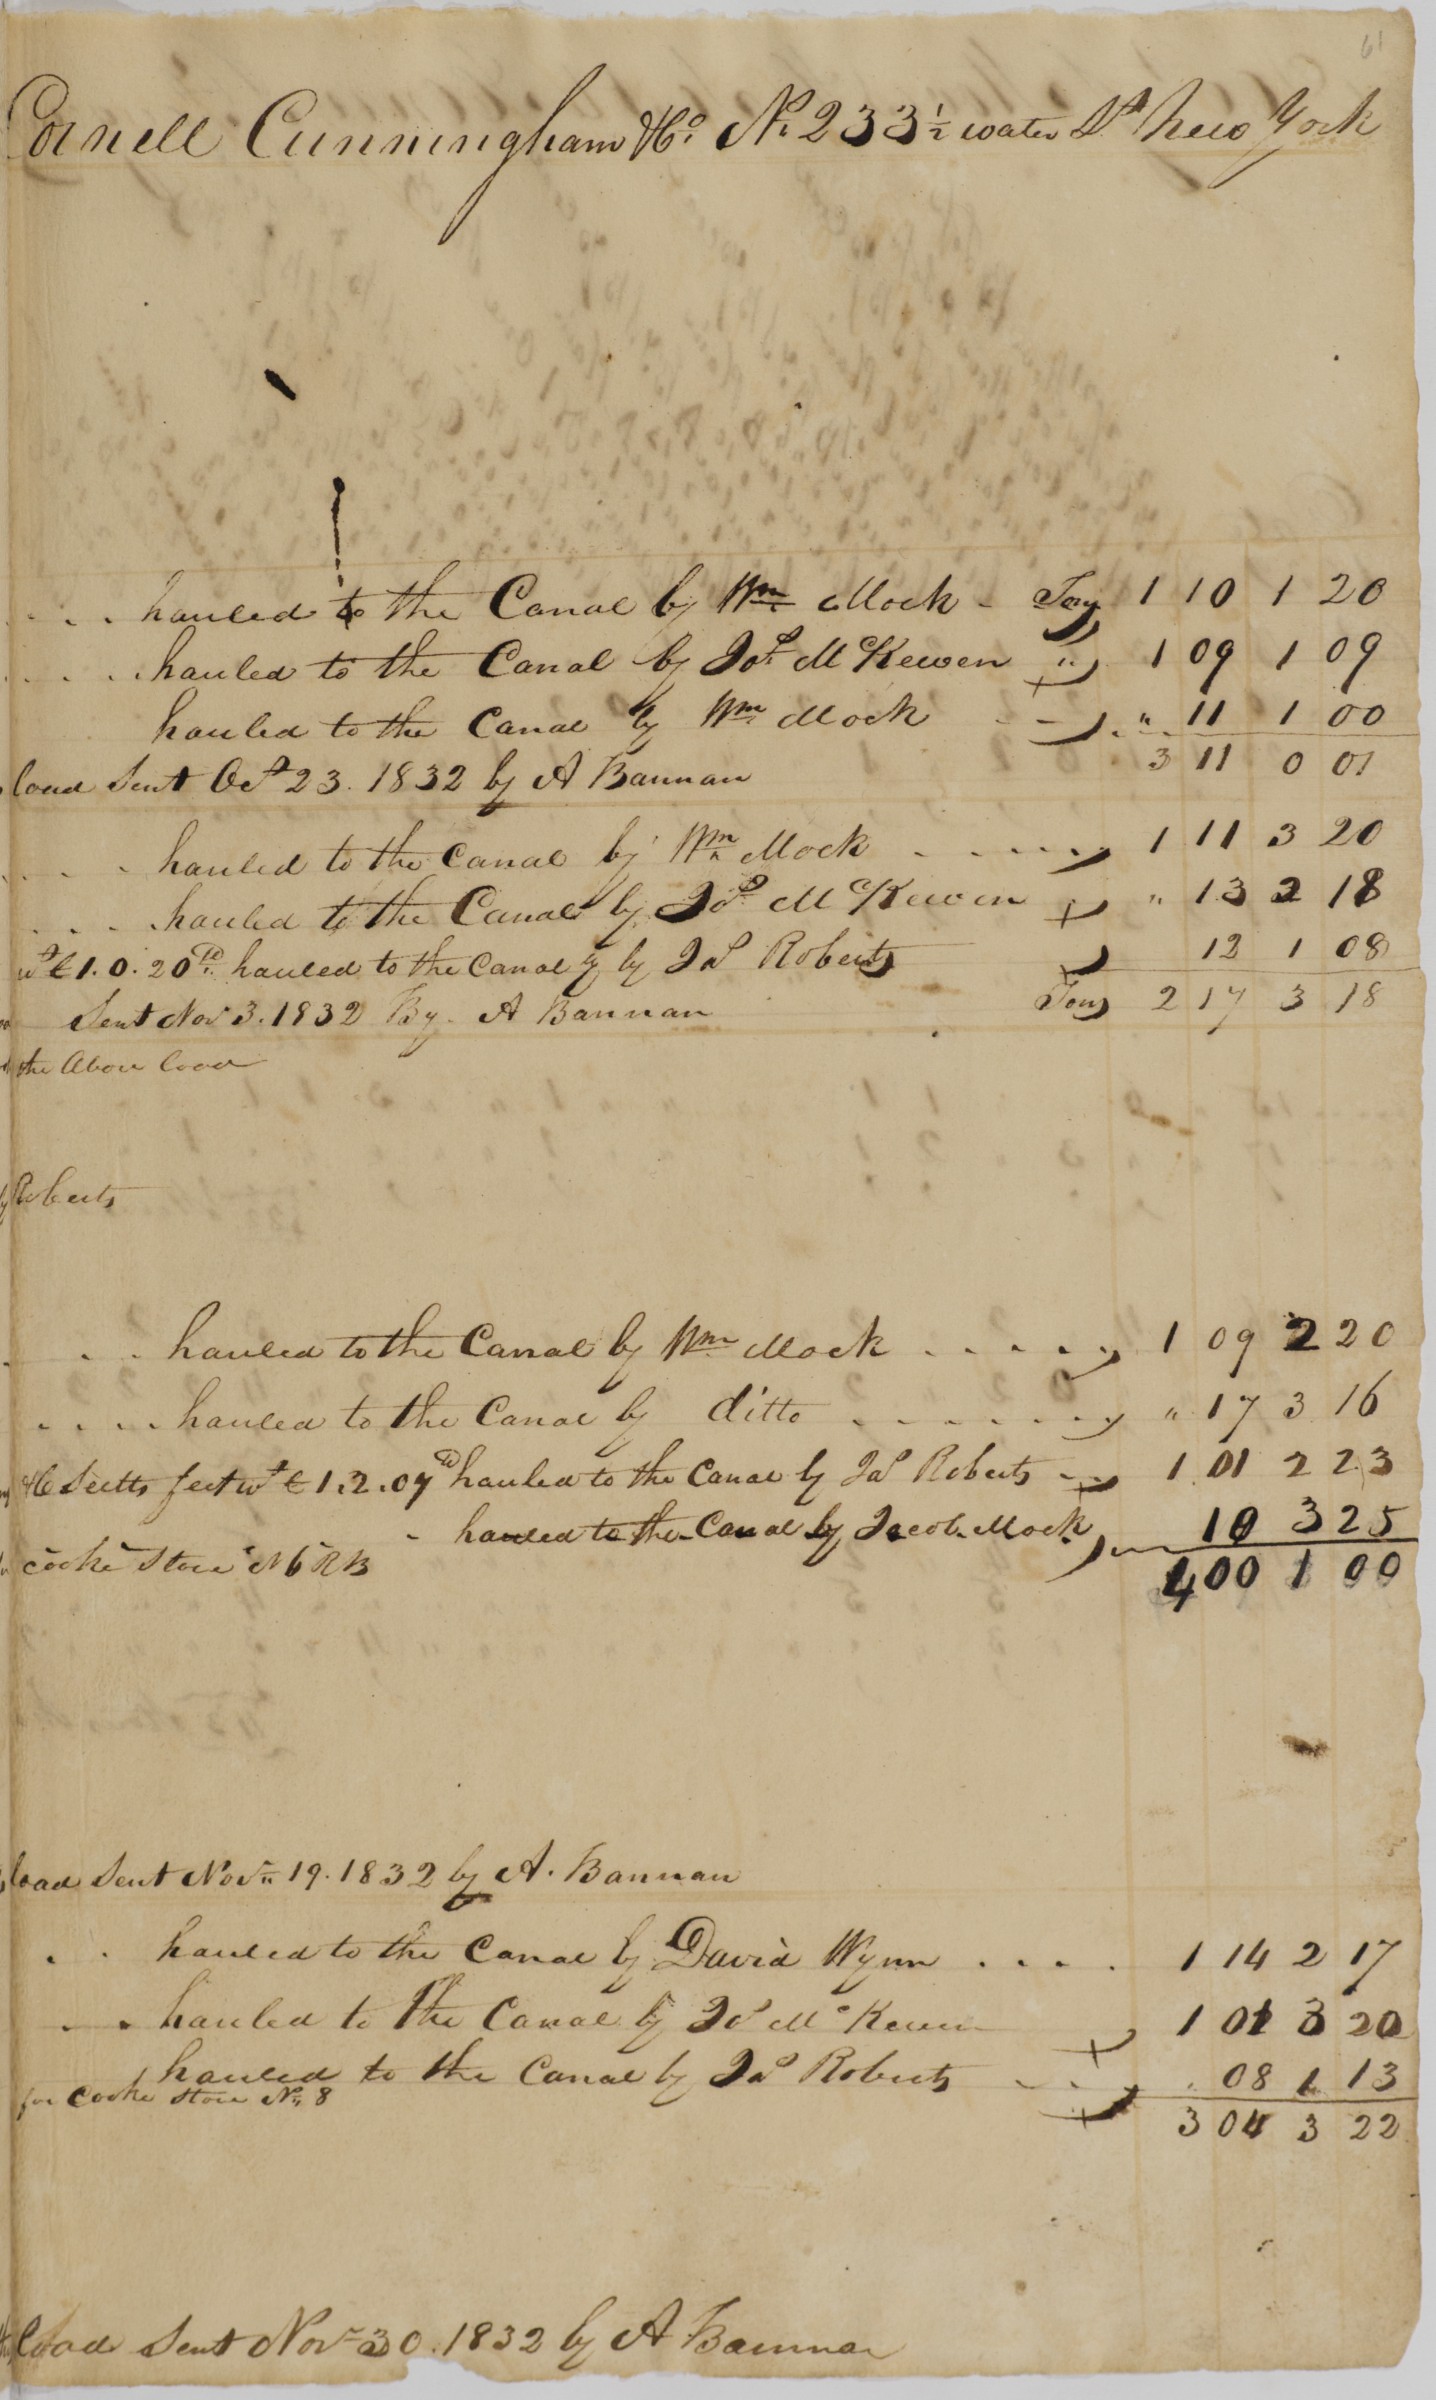 61
Cornell Cunningham & Co. No. 233 1/2 water St New York
hauled to the Canal by Wm Mock - Tons 1 10 1 20
hauled to the Canal by Jos McKewen " 1 09 1 09
hauled to the Canal by Wm Mock - - " 11 1 00
3 11 0 01
load Sent Oct 23. 1832 by A Bannan
hauled to the Canal by Wm Mock . . . . . 1 11 3 20
hauled to the Canal by Jos McKewen " 13 2 18
wt C 1. 0. 20 lb hauled to the Canal by by Jas Roberts 12 1 08
Sent Nov 3. 1832 By. A Bannan Tons 2 17 3 18
the Above load
by Roberts
. . . hauled to the Canal by Wm Mock . . . . . 1 09 2 20
. . . . hauled to the Canal by ditto . . . . . . . " 17 3 16
feet wt C 1. 2. 07 lb hauled to the Canal by Jas Roberts - - 1 01 2 23
- hauled to the Canal by Jacob Mock 10 3 25
Cooke Store No 6 RB
4 00 1 00
load Sent Nov. 19. 1832 by A. Bannan
. . hauled to the Canal by David Wynn . . . . 1 14 2 17
. . hauled to the Canal by Jos McKewen 1 01 3 20
hauled to the Canal by Jas Roberts . 08 1 13
for Cooke Store No. 8
3 04 3 22
load Sent Nov 30. 1832 by A Bannan